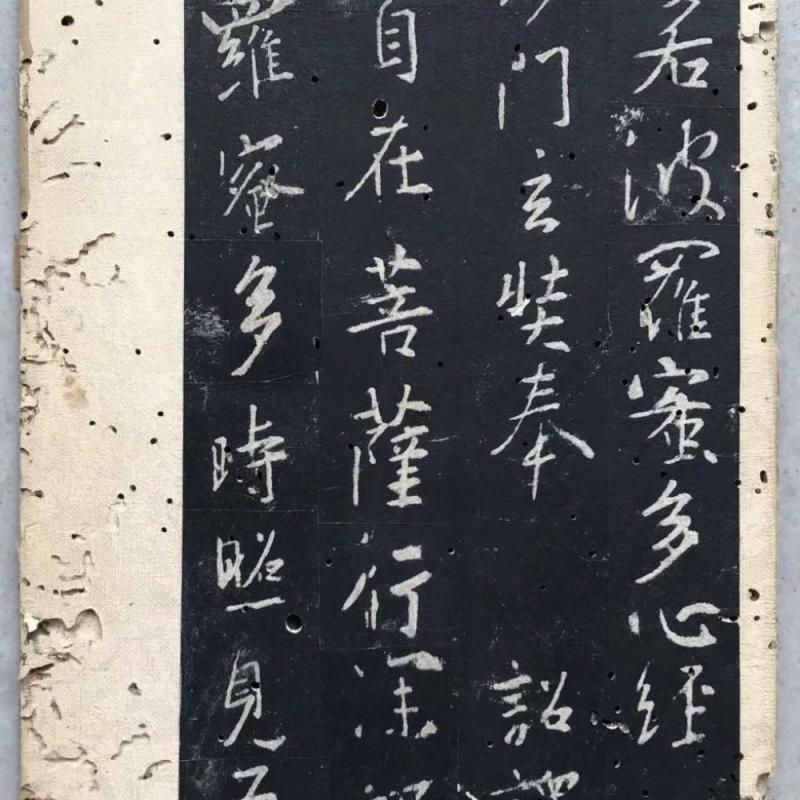 若波羅蜜多心經
門玄奘奉 詔
自在菩薩行深
羅蜜多時照見